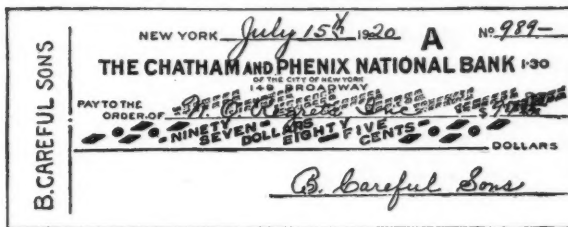 NEW YORK July 15th 1920 A No. 989-
THE CHATHAM AND PHENIX NATIONAL BANK 1-30
OF THE CITY OF NEW YORK
149 BROADWAY
PAY TO THE
ORDER OF N. O. Regrets Inc. $97.85
NINETY SEVEN DOLLARS EIGHTY FIVE CENTS
DOLLARS
B. Careful Sons
B. CAREFUL SONS